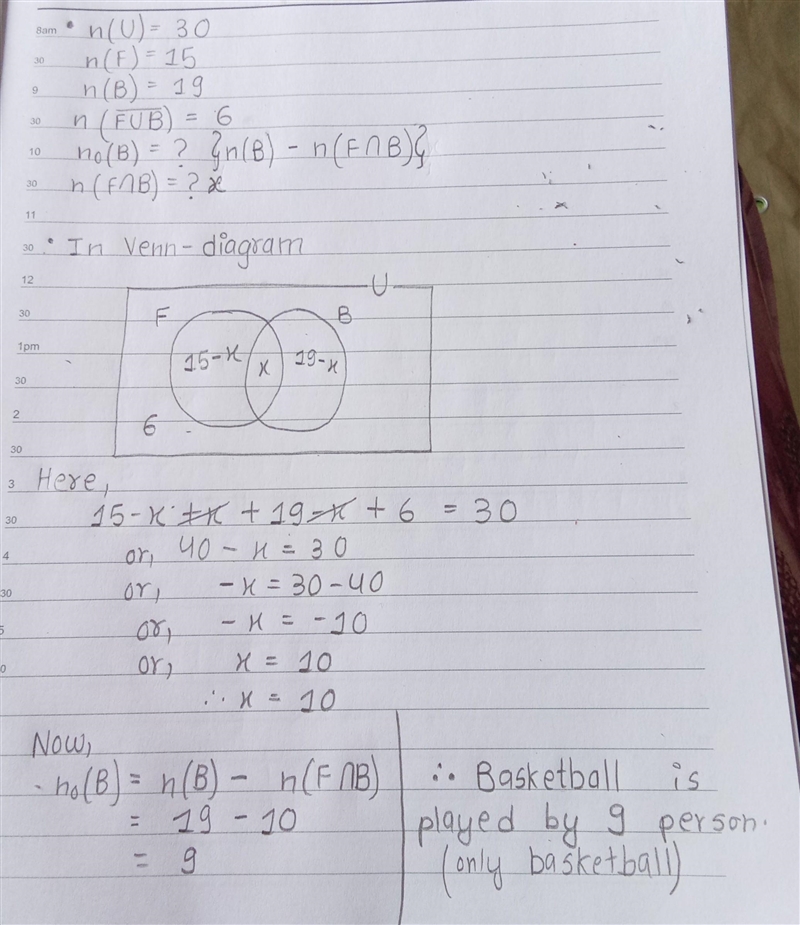 8am • n(U) = 30
30 n(F) = 15
9 n(B) = 19
30 n(F̅U̅B̅) = 6
10 n₀(B) = ? {n(B) - n(F∩B)}
30 n(F∩B) = ? x
11
30 • In Venn-diagram
12 U
30 F B
1pm 15-x x 19-x
30
2 6
30
3 Here,
30 15-x+x + 19-x + 6 = 30
4 or, 40 - x = 30
30 or, -x = 30-40
5 or, -x = -10
0 or, x = 10
∴ x = 10
Now,
n₀(B) = n(B) - n(F∩B)
= 19 - 10
= 9
∴ Basketball is
played by 9 person.
(only basketball)